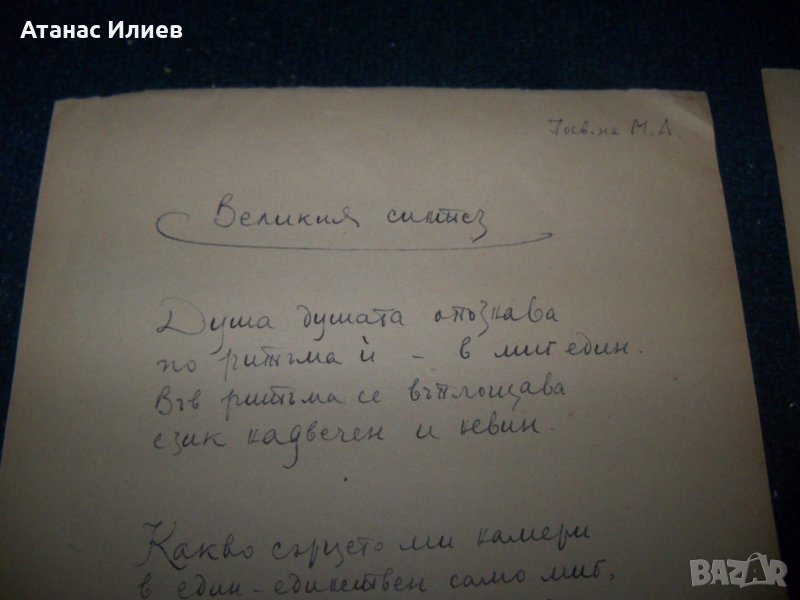 Атанас Илиев
Посв. на М. А.
Великия синтез
Душа душата опознава
по ритъма ѝ - в миг един.
Във ритъма се въплощава
език надвечен и невин.
Какво сърцето ми намери
в един-единствен само миг,
BAZAR